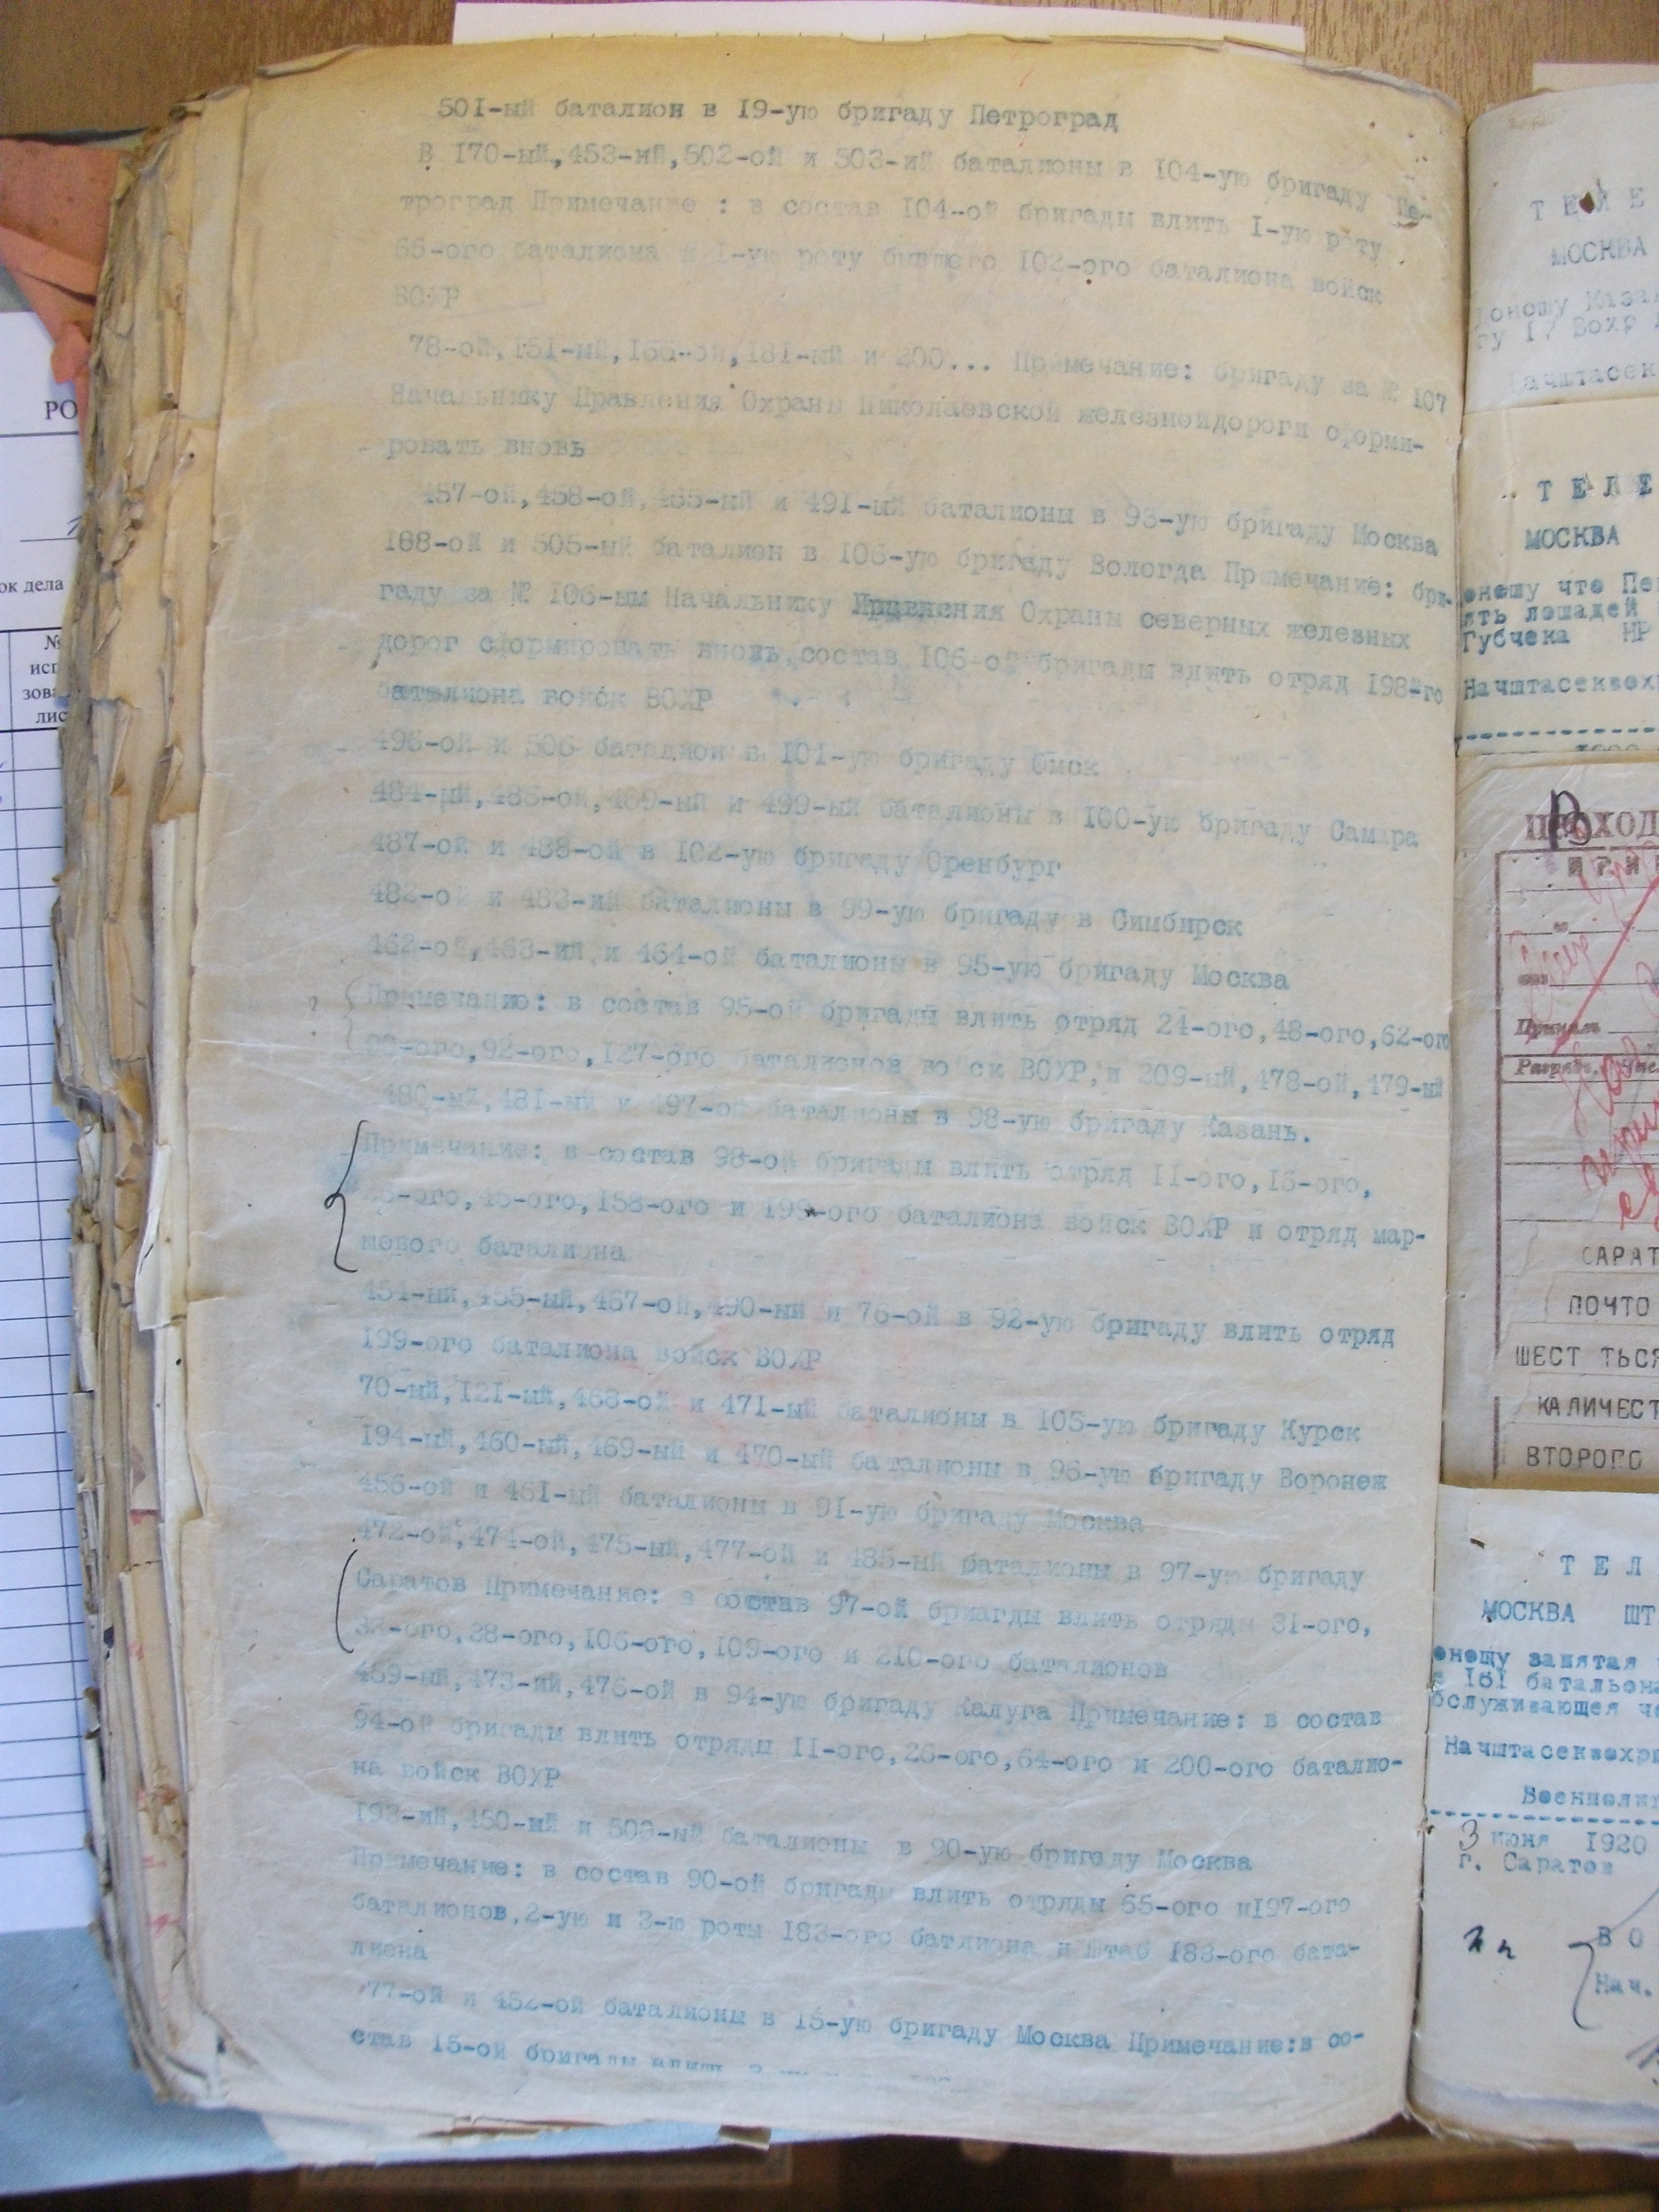 501-ый баталион в 19-ую бригаду Петроград
В 170-ый,453-ий,502-ой и 503-ий баталионы в 104-ую бригаду Пе-
троград Примечание : в состав 104-ой бригады влить 1-ую роту
66-ого баталиона и 1-ую роту бывшего 102-ого баталиона войск
ВОХР
78-ой,151-ый, 181-ый и 200... Примечание: бригаду за № 107
Начальнику Правления Охраны Николаевской железнойдороги сформи-
ровать вновь
457-ой,458-ой,465-ый и 491-ый баталионы в 93-ую бригаду Москва
188-ой и 505-ый баталион в 106-ую бригаду Вологда Примечание: бри-
гаду за № 106-ым Начальнику Охраны северных железных
дорог сформировать вновь,состав 106-ой бригады влить отряд 198-го
баталиона войск ВОХР
495-ой и 506 баталион в 101-ую бригаду Омск
484-ый,486-ой,489-ый и 499-ый баталионы в 100-ую бригаду Самара
487-ой и 488-ой в 102-ую бригаду Оренбург
482-ой и 483-ий баталионы в 99-ую бригаду в Симбирск
462-ой,463-ий,и 464-ой баталионы в 95-ую бригаду Москва
Примечание: в состав 95-ой бригады влить отряд 24-ого,48-ого,62-ого
92-ого,127-ого баталионов войск ВОХР,и 209-ый,478-ой,479-ый
480-ый,481-ый и 497-ой баталионы в 98-ую бригаду Казань.
Примечание: в состав 98-ой бригады влить отряд 11-ого,16-ого,
158-ого и 199-ого баталиона войск ВОХР и отряд мар-
шового баталиона
454-ый,455-ый,467-ой,490-ый и 76-ой в 92-ую бригаду влить отряд
199-ого баталиона войск ВОХР
70-ый,121-ый,468-ой и 471-ый баталионы в 105-ую бригаду Курск
194-ый,460-ый,469-ый и 470-ый баталионы в 96-ую бригаду Воронеж
456-ой и 461-ый баталионы в 91-ую бригаду Москва
472-ой,474-ой,475-ый,477-ой и 485-ый баталионы в 97-ую бригаду
Саратов Примечание: в состав 97-ой бриагды влить отряды 31-ого,
38-ого,106-ого,109-ого и 210-ого баталионов
459-ый,473-ий,476-ой в 94-ую бригаду Калуга Примечание: в состав
94-ой бригады влить отряды 11-ого,26-ого,64-ого и 200-ого баталио-
на войск ВОХР
193-ий,450-ый и 509-ый баталионы в 90-ую бригаду Москва
Примечание: в состав 90-ой бригады влить отряды 65-ого и197-ого
баталионов,2-ую и 3-ю роты 183-ого батлиона и штаб 183-ого бата-
лиона
77-ой и 452-ой баталионы в 15-ую бригаду Москва Примечание:в со-
став 15-ой бригады влить
РО
ок дела
№
исп
зова
лис
Т Е Л Е
МОСКВА
ту 17 Вохр
Начштасек
Т Е Л Е
МОСКВА
оношу что Пе
ять лошадей
Губчека НР
Начштасеквох
ПРОХОД
Принял
САРАТ
ПОЧТО
ШЕСТ ТЬСЯ
КАЛИЧЕСТ
ВТОРОГО
Т Е Л
МОСКВА ШТ
оношу занятая
с 181 батальона
бслуживающая че
Начштасеквохр
Военполит
3 июня 1920
г. Саратов
В О
Нач.